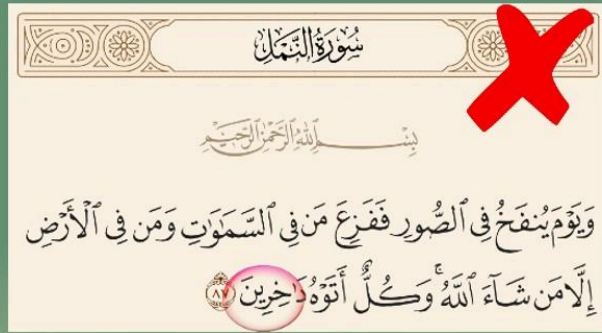 سُورَةُ النَّمْلِ
بِسْمِ اللَّهِ الرَّحْمَٰنِ الرَّحِيمِ
وَيَوْمَ يُنفَخُ فِى ٱلصُّورِ فَفَزِعَ مَن فِى ٱلسَّمَٰوَٰتِ وَمَن فِى ٱلْأَرْضِ
إِلَّا مَن شَآءَ ٱللَّهُ ۚ وَكُلٌّ أَتَوْهُ دَٰخِرِينَ ٨٧